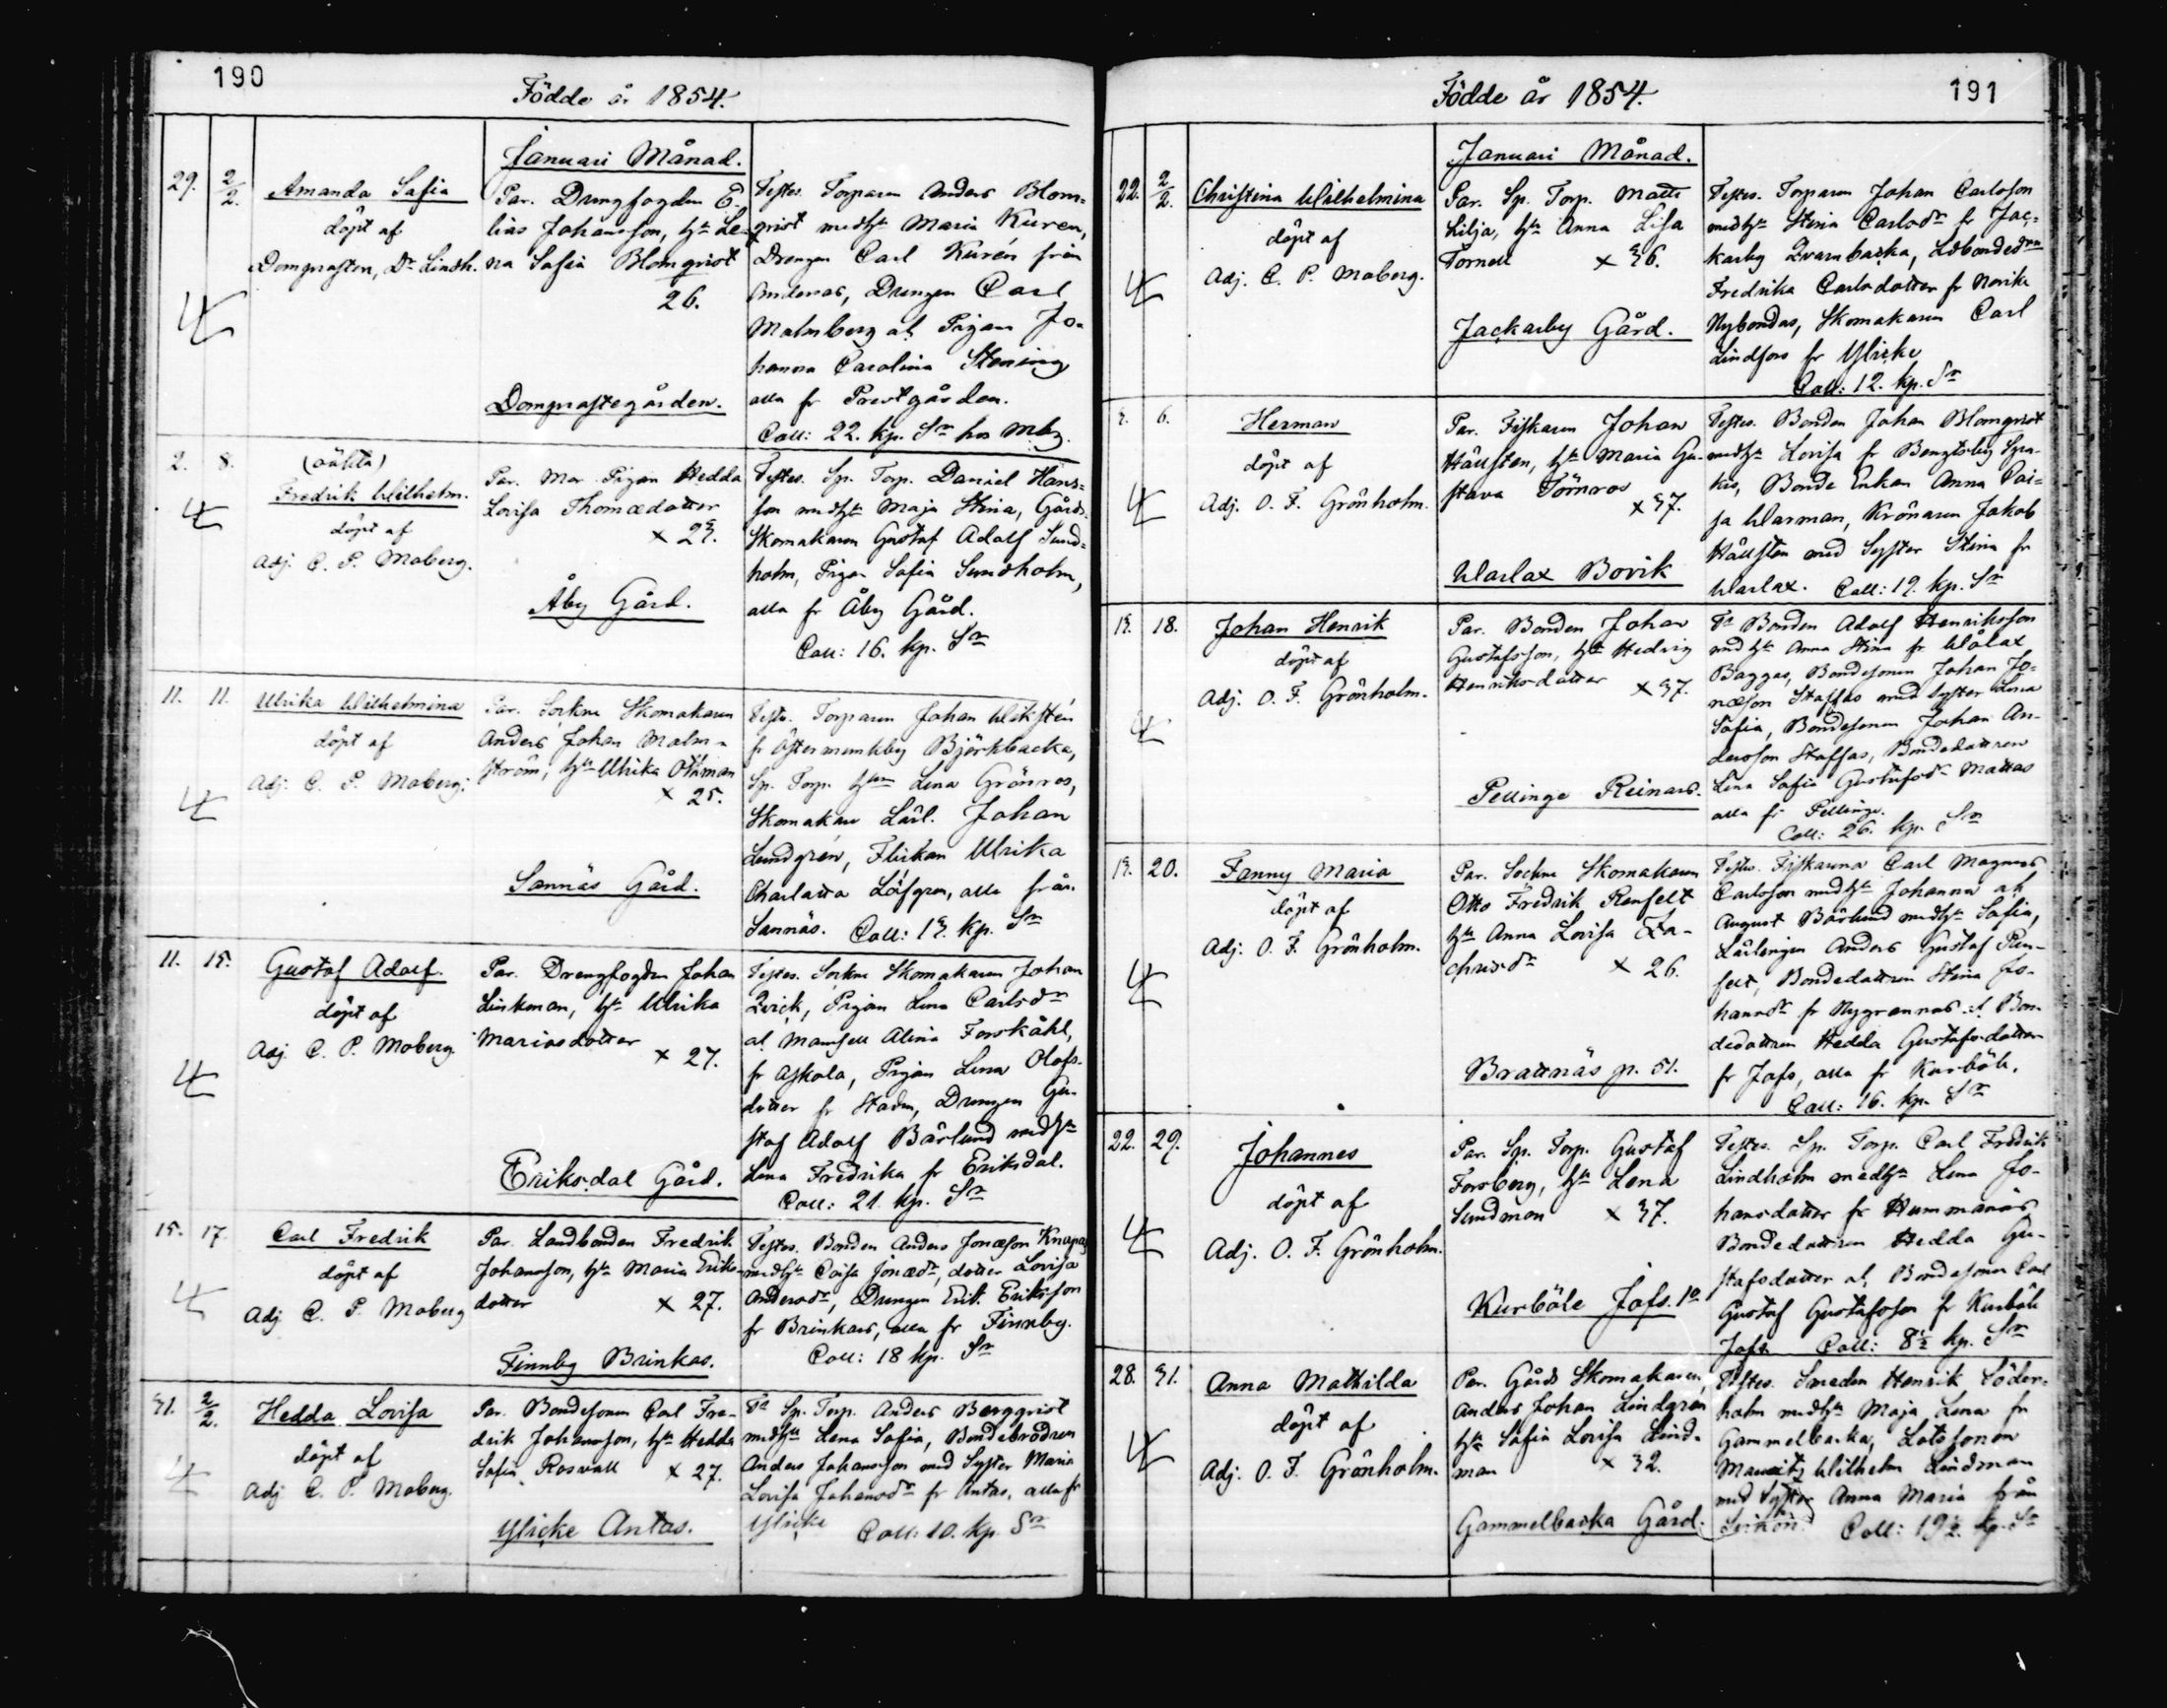 190
Födde år 1854.
Januari Månad.
29. 2/2. Amanda Sofia
döpt af
Domprosten, Dr Lindh.
Par. Drengfogden E-
lias Johansson, hu Le-
na Sofia Blomqvist
26.
Domprostegården.
Testes. Torparen Anders Blom-
qvist medhu Maria Kuren,
Drengen Carl Kurén från
Drengen Carl
Malmberg at Pigan Jo-
hanna Carolina Stening
alla fr Prestgården.
Coll: 22. kp. Sr hos Mbg.
2. 8. (oäkta)
Fredrik Wilhelm.
döpt af
Adj. C. P. Moberg.
Par. Mor Pigan Hedda
Lovisa Thomædotter
x 23.
Åby Gård.
Testes. Sp. Torp. Daniel Hans-
son medhu Maja Stina, Gårds
Skomakaren Gustaf Adolf Sund-
holm, Pigan Sofia Sundholm,
alla fr Åby Gård.
Coll: 16. kp. Sr
11. 11. Ulrika Wilhelmina
döpt af
Adj. C. P. Moberg.
Par. Sockne Skomakaren
Anders Johan Malm-
ström, hu Ulrika Öhman
x 25.
Sannäs Gård.
Testes. Torparen Johan Wiksten
fr Östermunkby Björkbacka,
Sp. Torp. hun Lena Grönros,
Skomakare Lärl. Johan
Lundgrén, Flickan Ulrika
Charlotta Löfgren, alla från
Sannäs. Coll: 13. kp. Sr
11. 15. Gustaf Adolf.
döpt af
Adj. C. P. Moberg.
Par. Drengfogden Johan
Linkman, hu Ulrika
Mariasdotter
x 27.
Eriksdal Gård.
Testes. Sockne Skomakaren Johan
Qvick, Pigan Lena Carlsdr
at Mamsell Alina Forskåhl,
fr Askola, Pigan Lena Olofs-
dotter fr Staden, Drengen Gu-
staf Adolf Bärlund medhu
Lena Fredrika fr Eriksdal.
Coll: 21. kp. Sr
15. 17. Carl Fredrik
döpt af
Adj C. P. Moberg
Par. Landbonden Fredrik
Johansson, hu Maria Eriks-
dotter x 27.
Finnby Brinkas.
Testes. Bonden Anders Jonæson Knapas
medhu Caisa Jonædr, dotter Lovisa
Andersdr, Drengen Erik Eriksson
fr Brinkas, alla fr Finnby.
Coll: 18 kp. Sr
31. 2/2. Hedda Lovisa
döpt af
Adj C. P. Moberg.
Par. Bondesonen Carl Fre-
drik Johansson, hu Hedda
Sofia Rosvall x 27.
Ylicke Antas.
Ts Sp. Torp. Anders Bergqvist
medhu Lena Sofia, Bondebrodren
Anders Johansson med Syster Maria
Lovisa Johansdr fr Antas, alla fr
Ylicke Coll: 10. kp. Sr
191
Födde år 1854.
Januari Månad.
22. 2/2. Christina Wilhelmina
döpt af
Adj. C. P. Moberg.
Par. Sp. Torp. Matts
Lilja, hu Anna Lisa
Tornell x 36.
Jackarby Gård.
Testes. Torparen Johan Carlsson
medhu Stina Carlsdr fr Jac-
karby Qvarnbacka,
Fredrika Carlsdotter fr Norike
Nybondas, Skomakaren Carl
Lindfors fr Ylicke
Coll: 12. kp. Sr
3. 6. Herman
döpt af
Adj. O. F. Grönholm.
Par. Fiskaren Johan
Hällsten, hu Maria Gu-
stava Törnros
x 37.
Warlax Bovik
Testes. Bonden Johan Blomqvist
medhu Lovisa fr Bengtsby
Bonde Enkan Anna Cai-
sa Warman, Krönaren Jakob
Hällsten med Syster Stina fr
Warlax. Coll: 12. kp. Sr
13. 18. Johan Henrik
döpt af
Adj. O. F. Grönholm.
Par. Bonden Johan
Gustafsson, hu Hedvig
Henriksdotter x 37.
Pellinge Reinars.
Ts Bonden Adolf Henriksson
medhu Anna Stina fr Wålax
Baggas, Bondesonen Johan Jo-
næson Staffas med Syster Lena
Sofia, Bondesonen Johan An-
dersson Staffas, Bondedottren
Lena Sofia Gustafsdr Mattas
alla fr Pellinge.
Coll: 26. kp. Sr
13. 20. Fanny Maria
döpt af
Adj. O. F. Grönholm.
Par. Sockne Skomakaren
Otto Fredrik Renfelt
hu Anna Lovisa Za-
chrisdr x 26.
Brattnäs p. 51.
Testes. Fiskarena Carl Magnus
Carlsson medhu Johanna at
August Bärlund medhu Sofia,
Lärlingen Anders Gustaf Ren-
felt, Bondedottren Stina Jo-
hansdr fr Nygrannas at Bon-
dedottren Hedda Gustafsdotter
fr Jofs, alla fr Kurböle.
Coll: 16. kp. Sr
22. 29. Johannes
döpt af
Adj. O. F. Grönholm.
Par. Sp. Torp. Gustaf
Forsberg, hu Lena
Sundman x 37.
Kurböle Jofs. 10
Testes. Sp. Torp. Carl Fredrik
Lindholm medhu Lena Jo-
hansdotter fr Hummanäs
Bondedottren Hedda Gu-
stafsdotter at Bondesonen Carl
Gustaf Gustafsson fr Kurböle
Jofs. Coll: 8½ kp. Sr
28. 31. Anna Mathilda
döpt af
Adj. O. F. Grönholm.
Par. Gårds Skomakaren,
Anders Johan Lindgren
hu Sofia Lovisa Lind-
man x 32.
Gammelbacka Gård.
Testes. Smeden Henrik Söder-
holm medhu Maja Lena fr
Gammelbacka, Lotssonen
Mauritz Wilhelm Lindman
med Syster Anna Maria från
Coll: 19½. kp. Sr